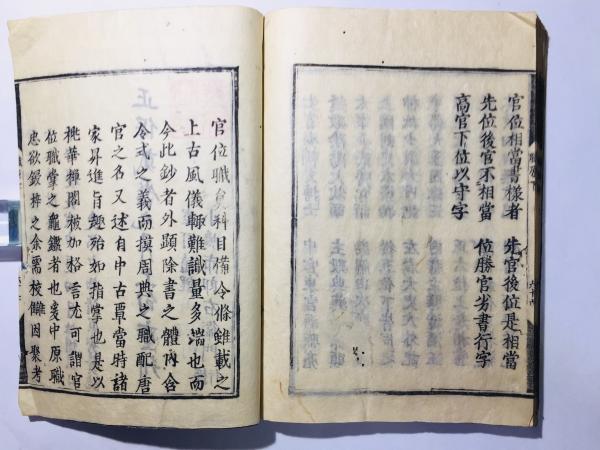 官位相當書樣者 先官後位是相當
先位後官不相當 位勝官劣書行字
高官下位以守字
官位職員科目備 令條雖載之
上古風儀輙難識量多端也而
今此鈔者外顕除書之體內含
令式之義而摸周典之職配唐
官之名又述自中古覃當時諸
家昇進旨趣殆如指掌也是以
桃華禅閤被加格言尤可謂官
位職掌之龜鑑者也爰中原職
忠欲鋟梓之余需校讎因聚考